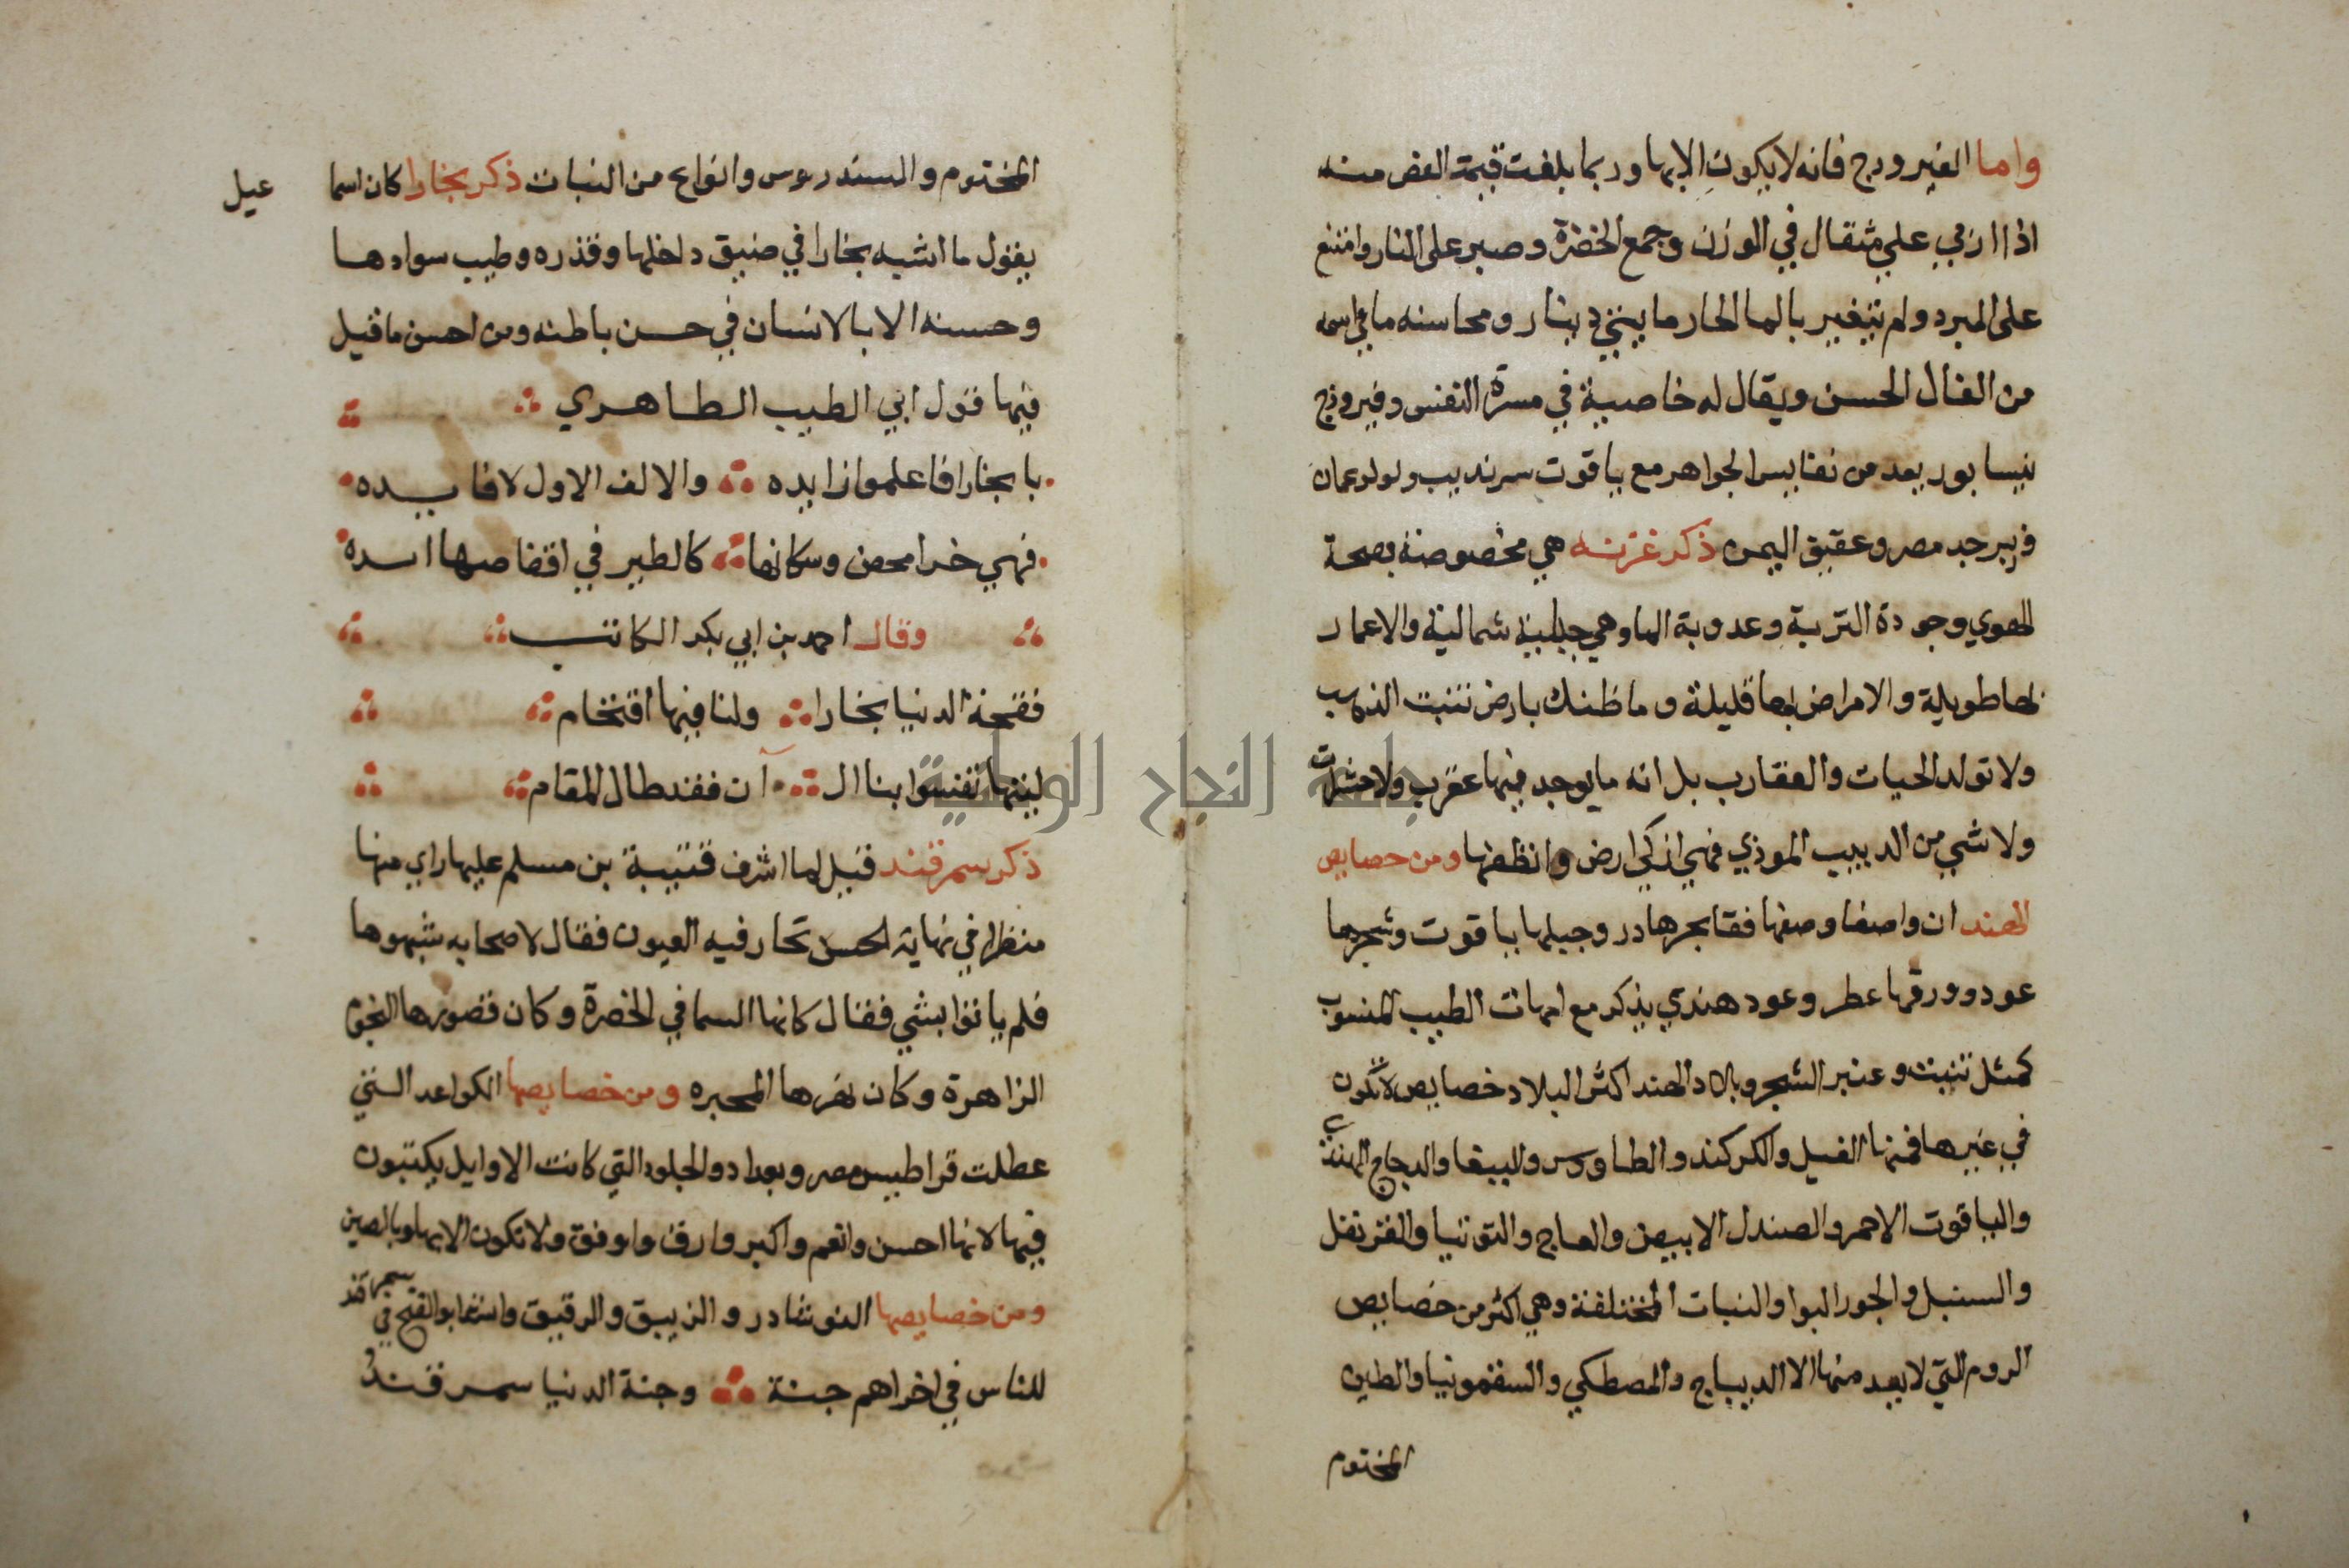 واما الفيروزج فانه لا يكون الا بها وربما بلغت قيمة الفص منه
اذا اربي علي مثقال في الوزن وجمع الخضرة وصبر على النار وامتنع
على المبرد ولم يتغير بالما الحار مايتي دينار ومحاسنه ما في اسمه
من الفال الحسن ويقال له خاصية في مسرة النفس وفيروزج
نيسابور يعد من نفايس الجواهر مع ياقوت سرنديب ولولو عمان
وزبرجد مصر وعقيق اليمن ذكر غزنه هي مخصوصة بصحة
الهوي وجودة التربة وعدوبة الما وهي جبلية شمالية والاعمار
بها طويلة والامراض بها قليلة وما ظنك بارض تنبت الذهب
ولا تولد الحيات والعقارب بل انه ما يوجد فيها عقرب ولا حشرات
ولا شي من الدبيب الموذي فهي ازكي ارض وانظفها ومن خصايص
الهند ان واصفا وصفها فقا بحرها در وجبلها ياقوت وشجرها
عود وورقها عطر وعود هندي يذكر مع امهات الطيب المنسوب
كمثل تنبت وعنبر الشجر وبلاد الهند اكثر البلاد خصايص لا تكون
في غيرها فمنها الفيل والكركند والطاووس والببغا والدجاج الهندي
والياقوت الاحمر والصندل الابيض والعاج والتوتيا والقرنفل
والسنبل والجوز البوا والنبات المختلفة وهي اكثر من خصايص
الروم التي لا يعد منها الا الديباج والمصطكي والسقمونيا والطين
المختوم
المختوم والسندروس وانواع من النبات ذكر بخارا كان اسما
عيل
يقول ما اشبه بخارا في ضيق داخلها وقذره وطيب سوادها
وحسنه الا بالانسان في حسن باطنه ومن احسن ما قيل
فيها قول ابي الطيب الطاهري
با بخارا فاعلموا زايده والالف الاول لا فايده
فهي خرا محض وسكانها كالطير في اقفاصها اسده
وقال احمد بن ابي بكر الكاتب
فقحة الدنيا بخارا ولنا فيها اقتخام
ليتها تفسوا بنا ال آن فقد طال المقام
ذكر سمرقند قيل لما اشرف قتيبة بن مسلم عليها راي منها
منظرا في نهاية الحسن تحار فيه العيون فقال لاصحابه شبهوها
فلم ياتوا بشي فقال كانها السما في الخضرة وكان قصورها النجوم
الزاهرة وكان نهرها المجره ومن خصايصها الكواغد التي
عطلت قراطيس مصر وبغداد والجلود التي كانت الاوايل يكتبون
فيها لانها احسن وانعم واكبر وارق واوفق ولا تكون الا بها وبالصين
ومن خصايصها النوشادر والزيبق والرقيق وانشا ابو الفتح في سمرقند
للناس في اخراهم جنة وجنة الدنيا سمرقند
جامعة النجاح الوطنية